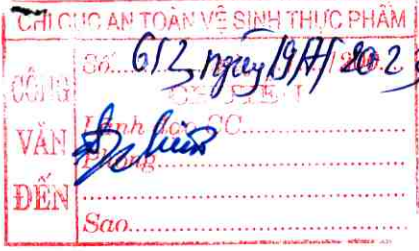 CHI CỤC AN TOÀN VỆ SINH THỰC PHẨM
CÔNG VĂN ĐẾN
Số 612 ngày 19/7/2023
Lãnh đạo CC
Phòng
Sao